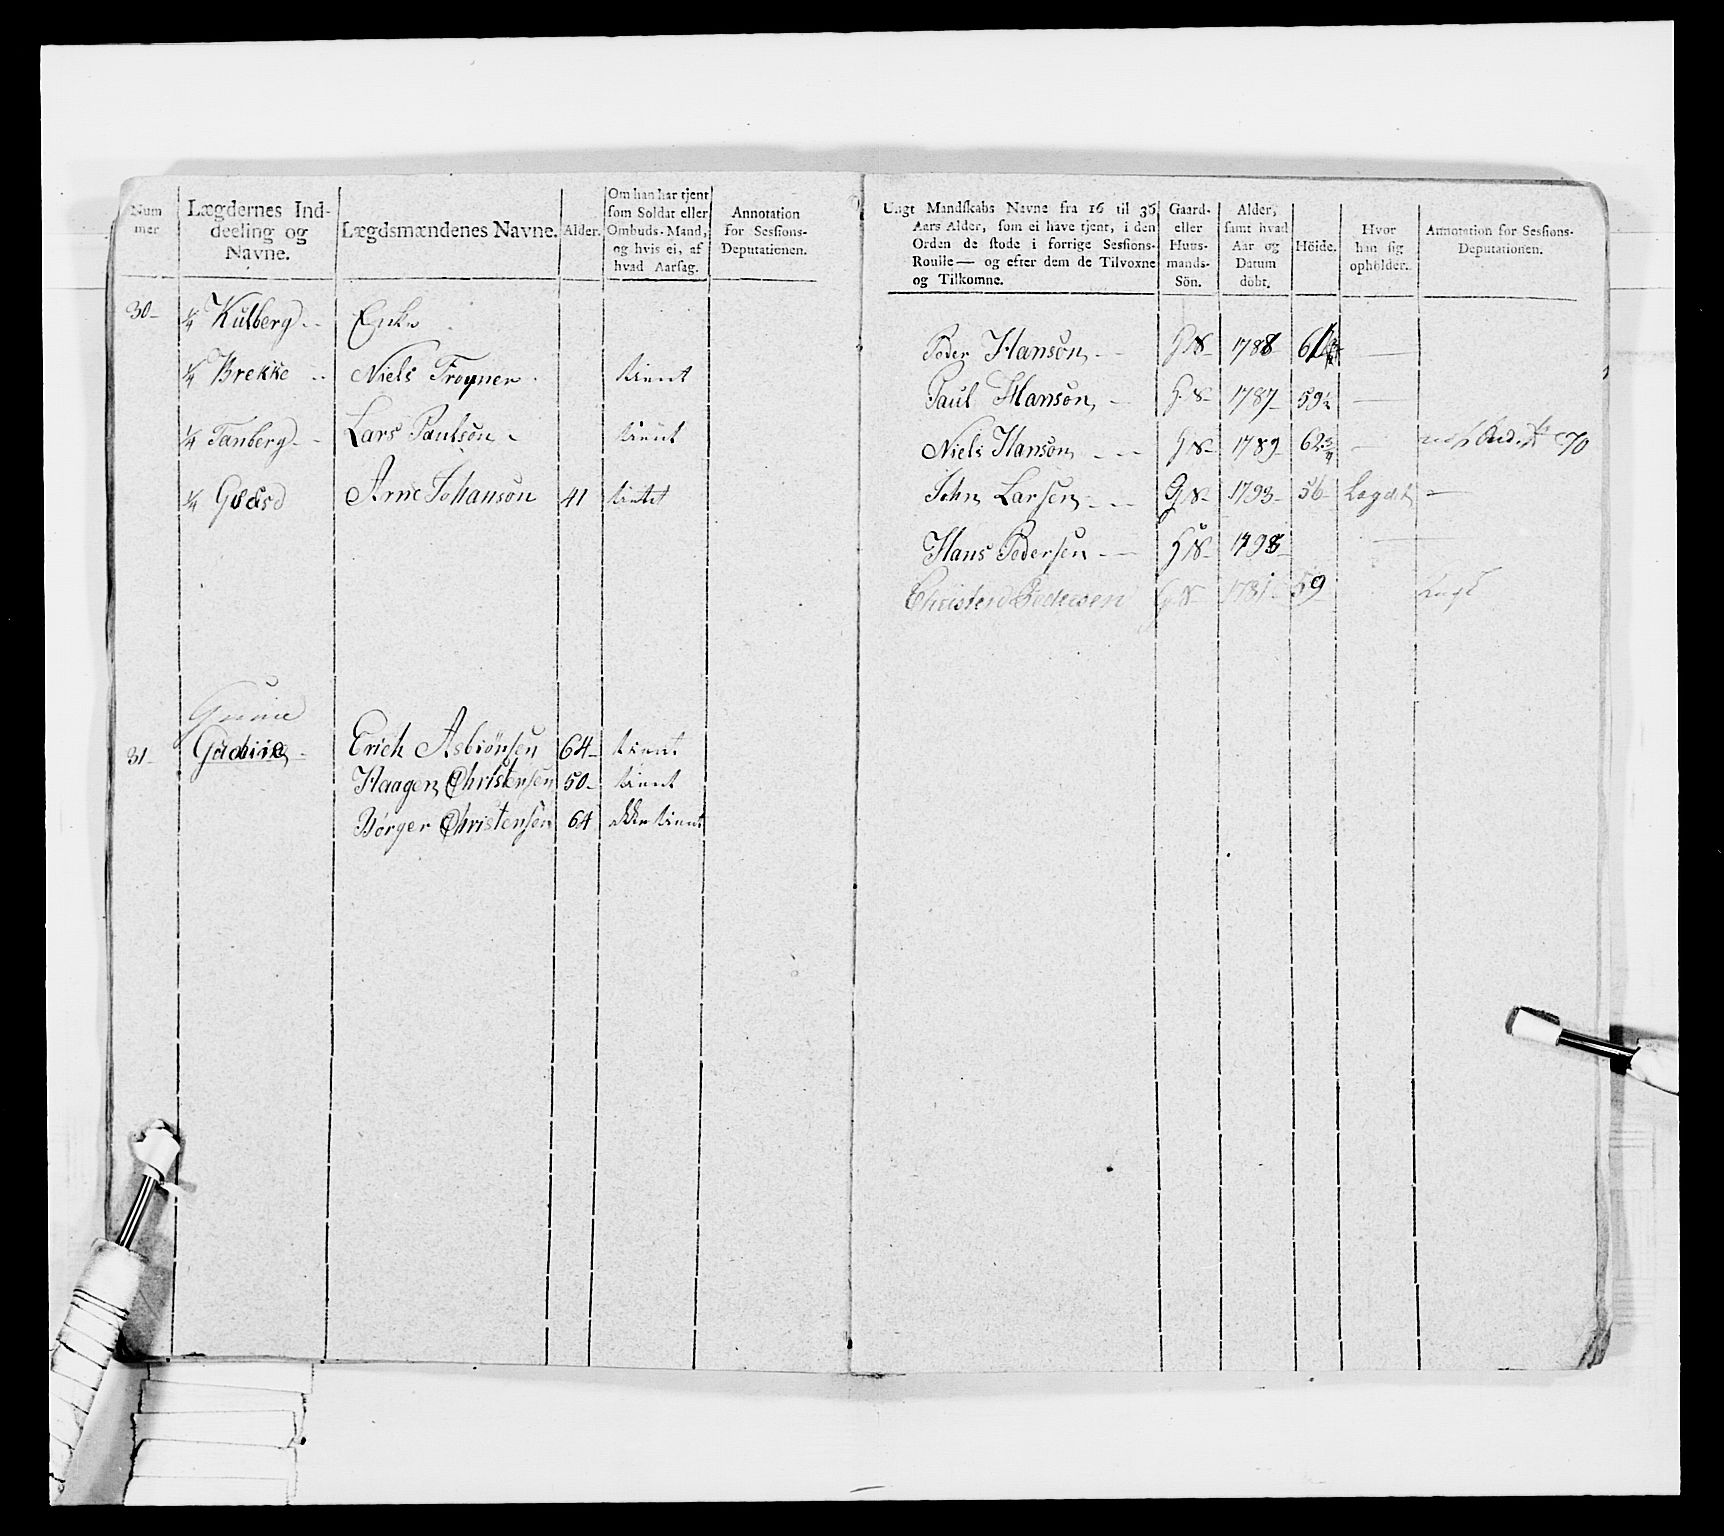 Num
mer
Lægdernes Ind-
deeling og
Navne.
Lægdsmændenes Navne.
Alder.
Om han har tjent
som Soldat eller
Ombuds-Mand,
og hvis ei, af
hvad Aarsag.
Annotation
for Sessions-
Deputationen.
Ungt Mandskabs Navne fra 16 til 36
Aars Alder, som ei have tjent, i den
Orden de stode i forrige Sessions-
Roulle — og efter dem de Tilvoxne
og Tilkomne.
Gaard-
eller
Huus-
mands-
Sön.
Alder,
samt hvad
Aar og
Datum
döbt.
Höide.
Hvor
han sig
opholder.
Annotation for Sessions-
Deputationen.
30- ¼ Kulberg Enke
¼ Brekke Niels Troyner tient
¼ Tanberg Lars Paulsøn tient
¼ Arne Johansøn 41 tient
31 Erich Asbiønsen 64 tient
Haagen Christensen 50 tient
Børger Christensen 64 ikke tient
Peder Hanson GS 1788
Paul Hanson GS 1787 59½
Niels Hanson GS 1789 62¾ 70
John Larsen GS 1793 56
Hans Pedersen GS 1798
Christen Pedersen GS 1781 59